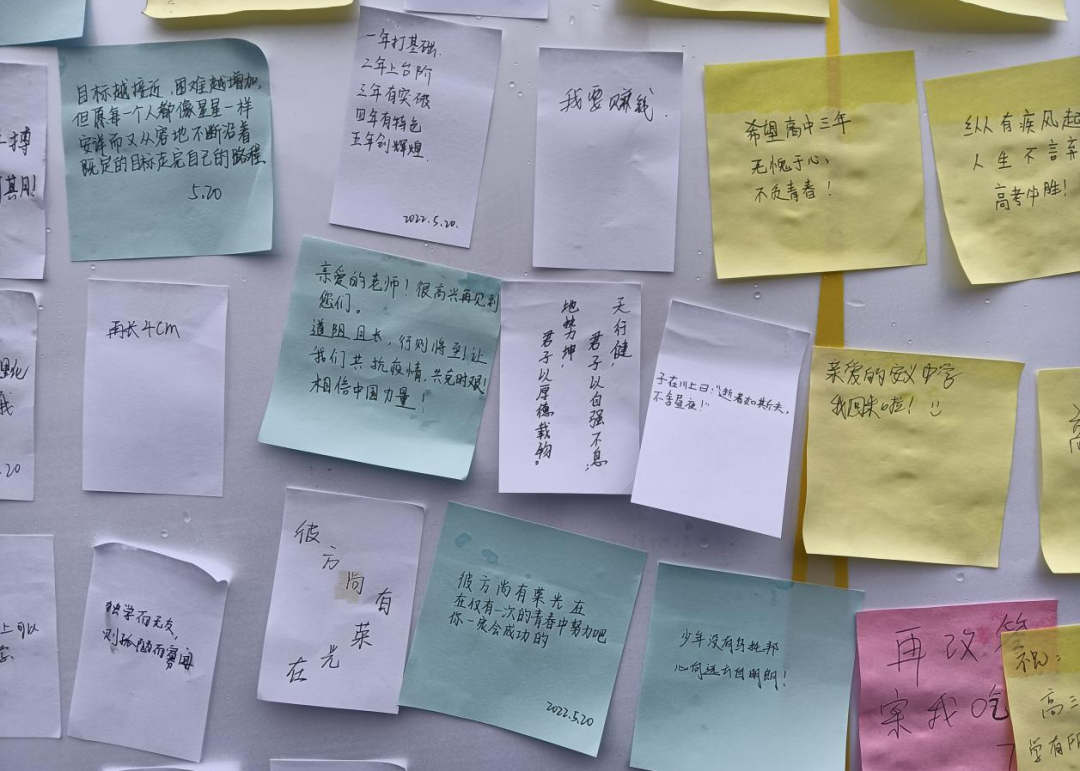 目标越接近,困难越增加,
但愿每一个人都像星星一样
安详而又从容地不断沿着
既定的目标走完自己的路程.
5.20
一年打基础.
二年上台阶
三年有突破
四年有特色
五年创辉煌.
2022.5.20.
我要赚钱.
希望高中三年
无愧于心、
不负青春!
纵有疾风起
人生不言弃
高考必胜!
再长4cm
亲爱的老师!很高兴再见到
您们。
道阻且长,行则将至!让
我们共抗疫情,共克时艰!
相信中国力量
天行健,
君子以自强不息;
地势坤,
君子以厚德载物。
子在川上曰:"逝者如斯夫,
不舍昼夜!"
亲爱的安义中学
我回来啦!
独学而无友,
则孤陋而寡闻
彼方尚有荣光在
彼方尚有荣光在
在仅有一次的青春中努力吧
你一定会成功的
2022.5.20
少年没有乌托邦
心向远方自明朗!
再改答
案我吃
祝:
高三
学有所